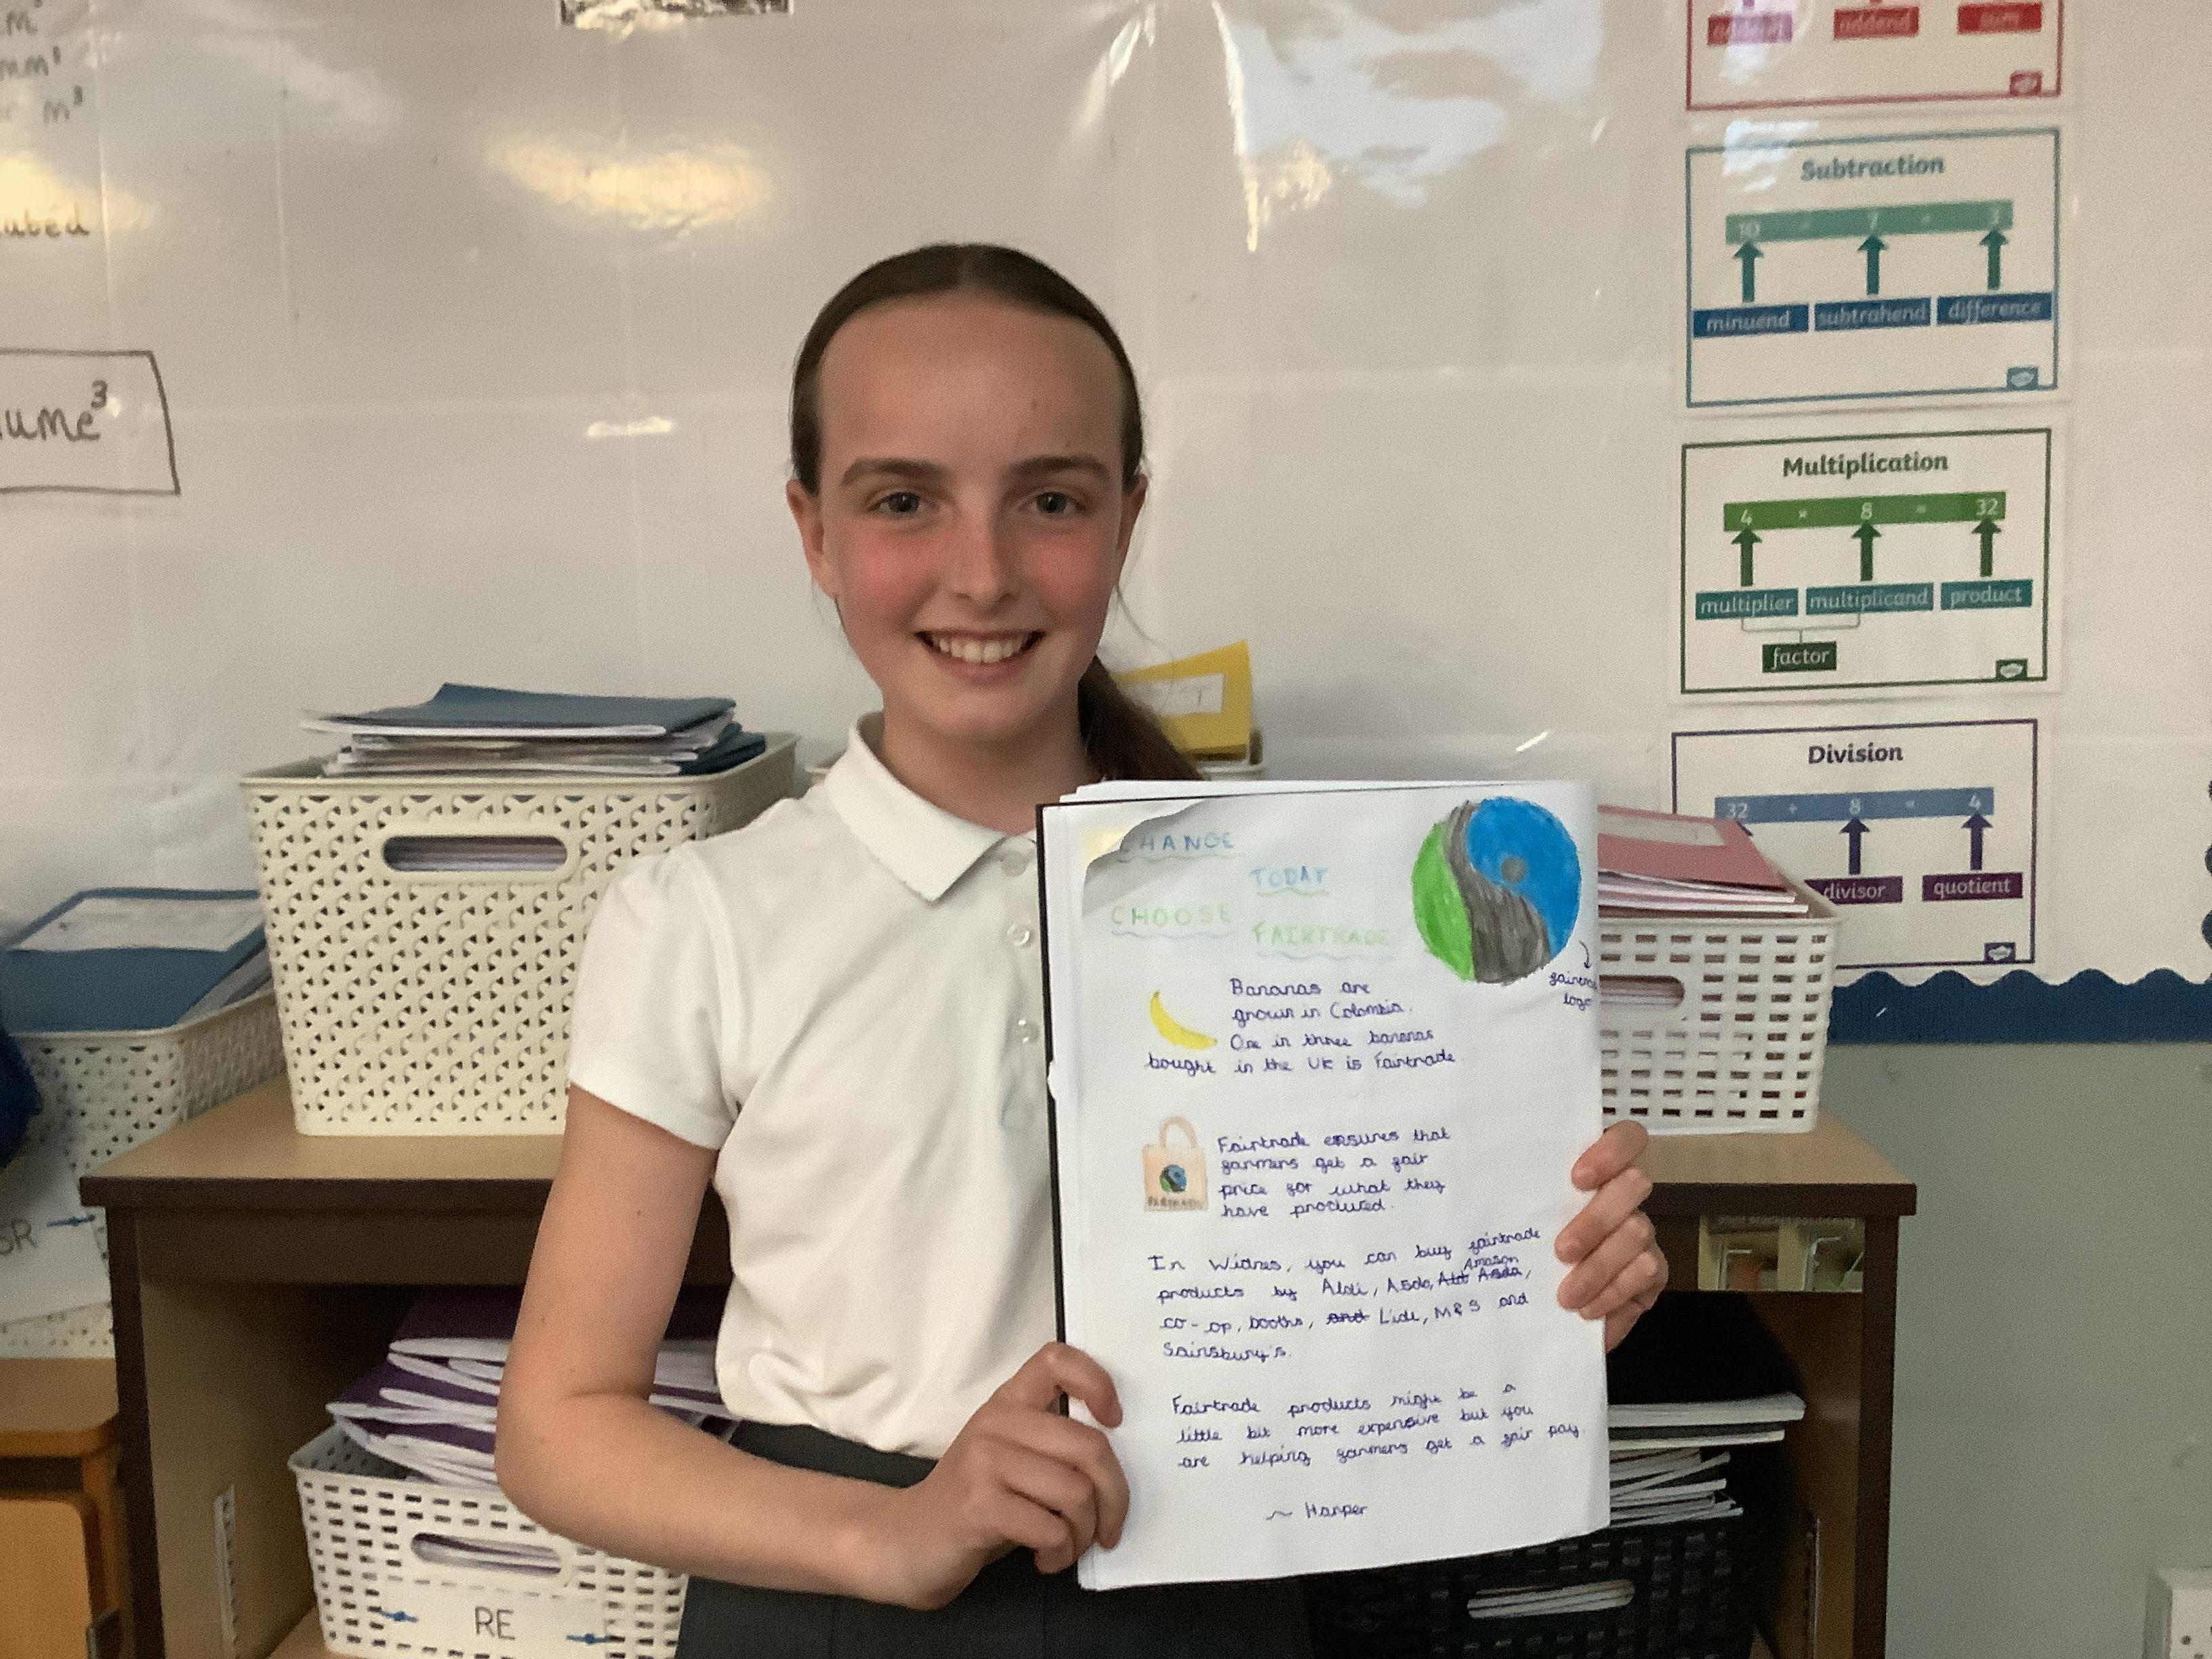 m³
mm³
m³
cubed
ume³
addend addend sum
Subtraction
10 - 7 = 3
minuend subtrahend difference
Multiplication
4 × 8 = 32
multiplier multiplicand product
factor
Division
32 ÷ 8 = 4
divisor quotient
SR
RE
HANGE
TODAY
CHOOSE
FAIRTRADE
fairtrade
logo
Bananas are
grown in Colombia.
One in three bananas
bought in the UK is Fairtrade.
Fairtrade ensures that
farmers get a fair
price for what they
have produced.
FAIRTRADE
In Widnes, you can buy fairtrade
Amazon
products by Aldi, Asda, Ald Asda,
co-op, booths, and Lidl, M&S and
Sainsbury's.
Fairtrade products might be a
little bit more expensive but you
are helping farmers get a fair pay.
~ Harper